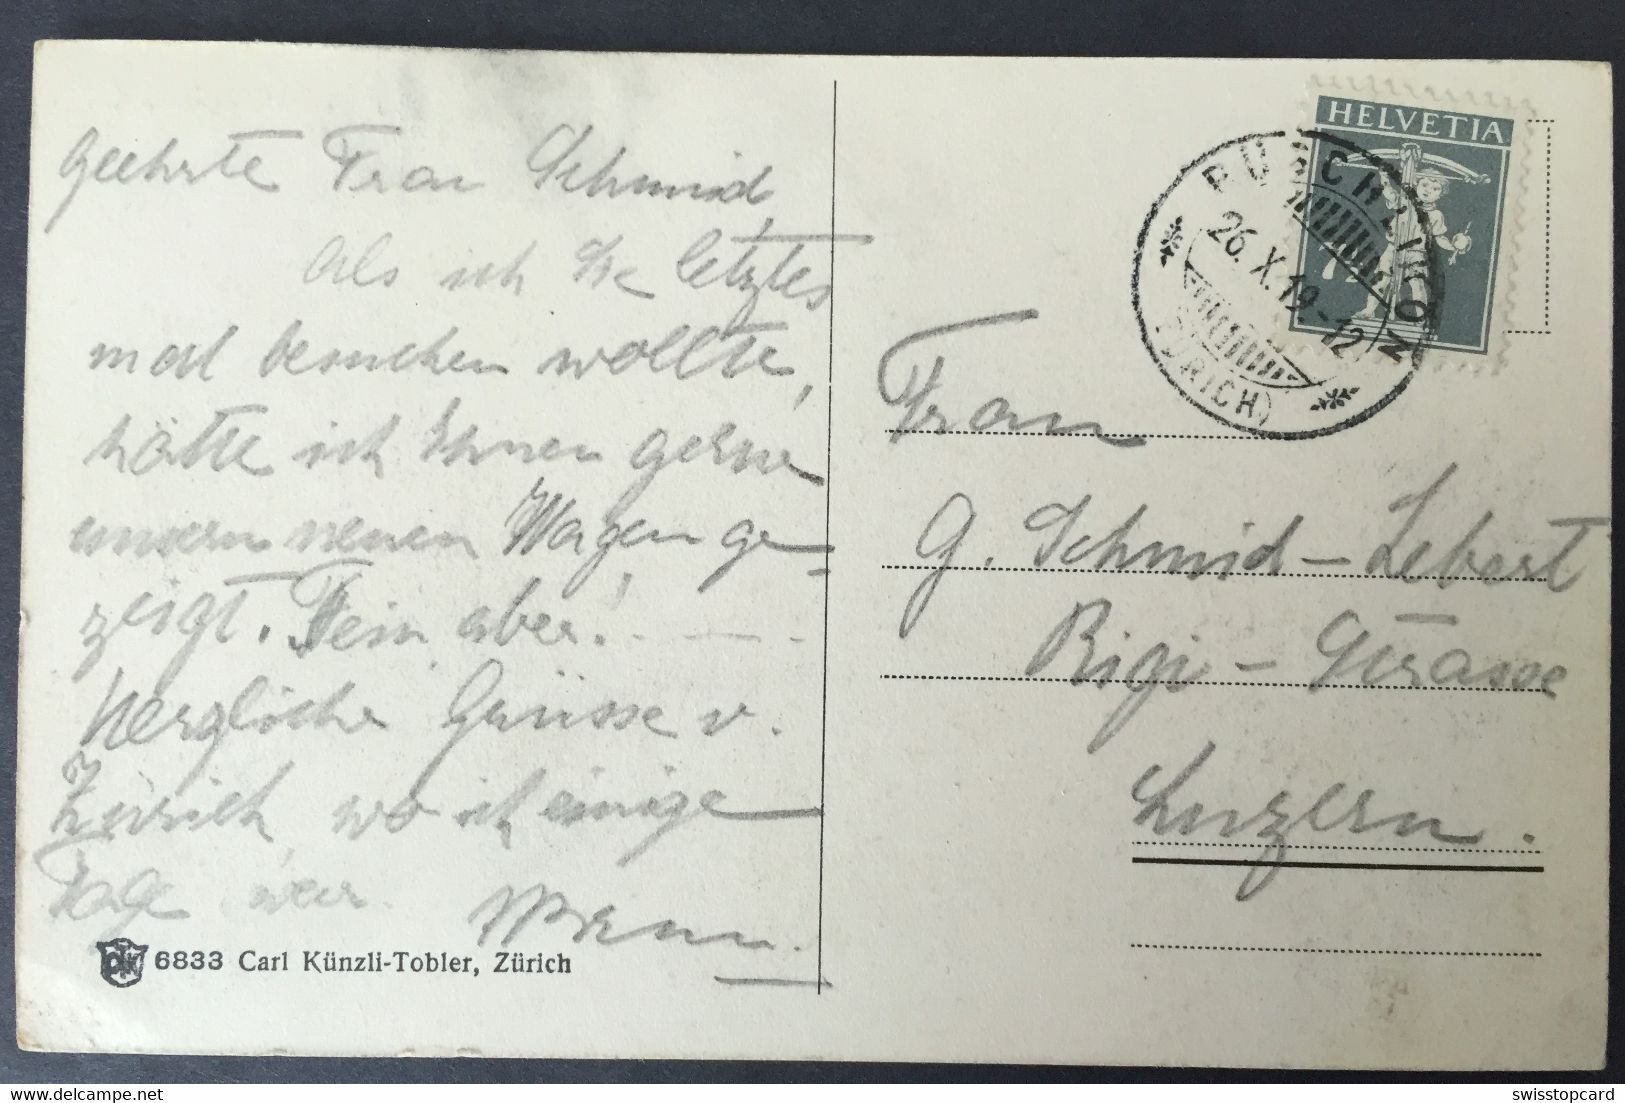 Geehrte Frau Schmid,
Als ich Sie letztes
mal besuchen wollte,
hätte ich Ihnen gerne
unsern neuen Wagen ge-
zeigt. Fein aber! - - -
Herzliche Grüsse v.
Zürich, wo ich einige
Tage war.
6833 Carl Künzli-Tobler, Zürich
HELVETIA
26.X.19.-12
(ZÜRICH)
Frau
G. Schmid-Lebert
Rigi-Strasse
Luzern.
www.delcampe.net
swisstopcard